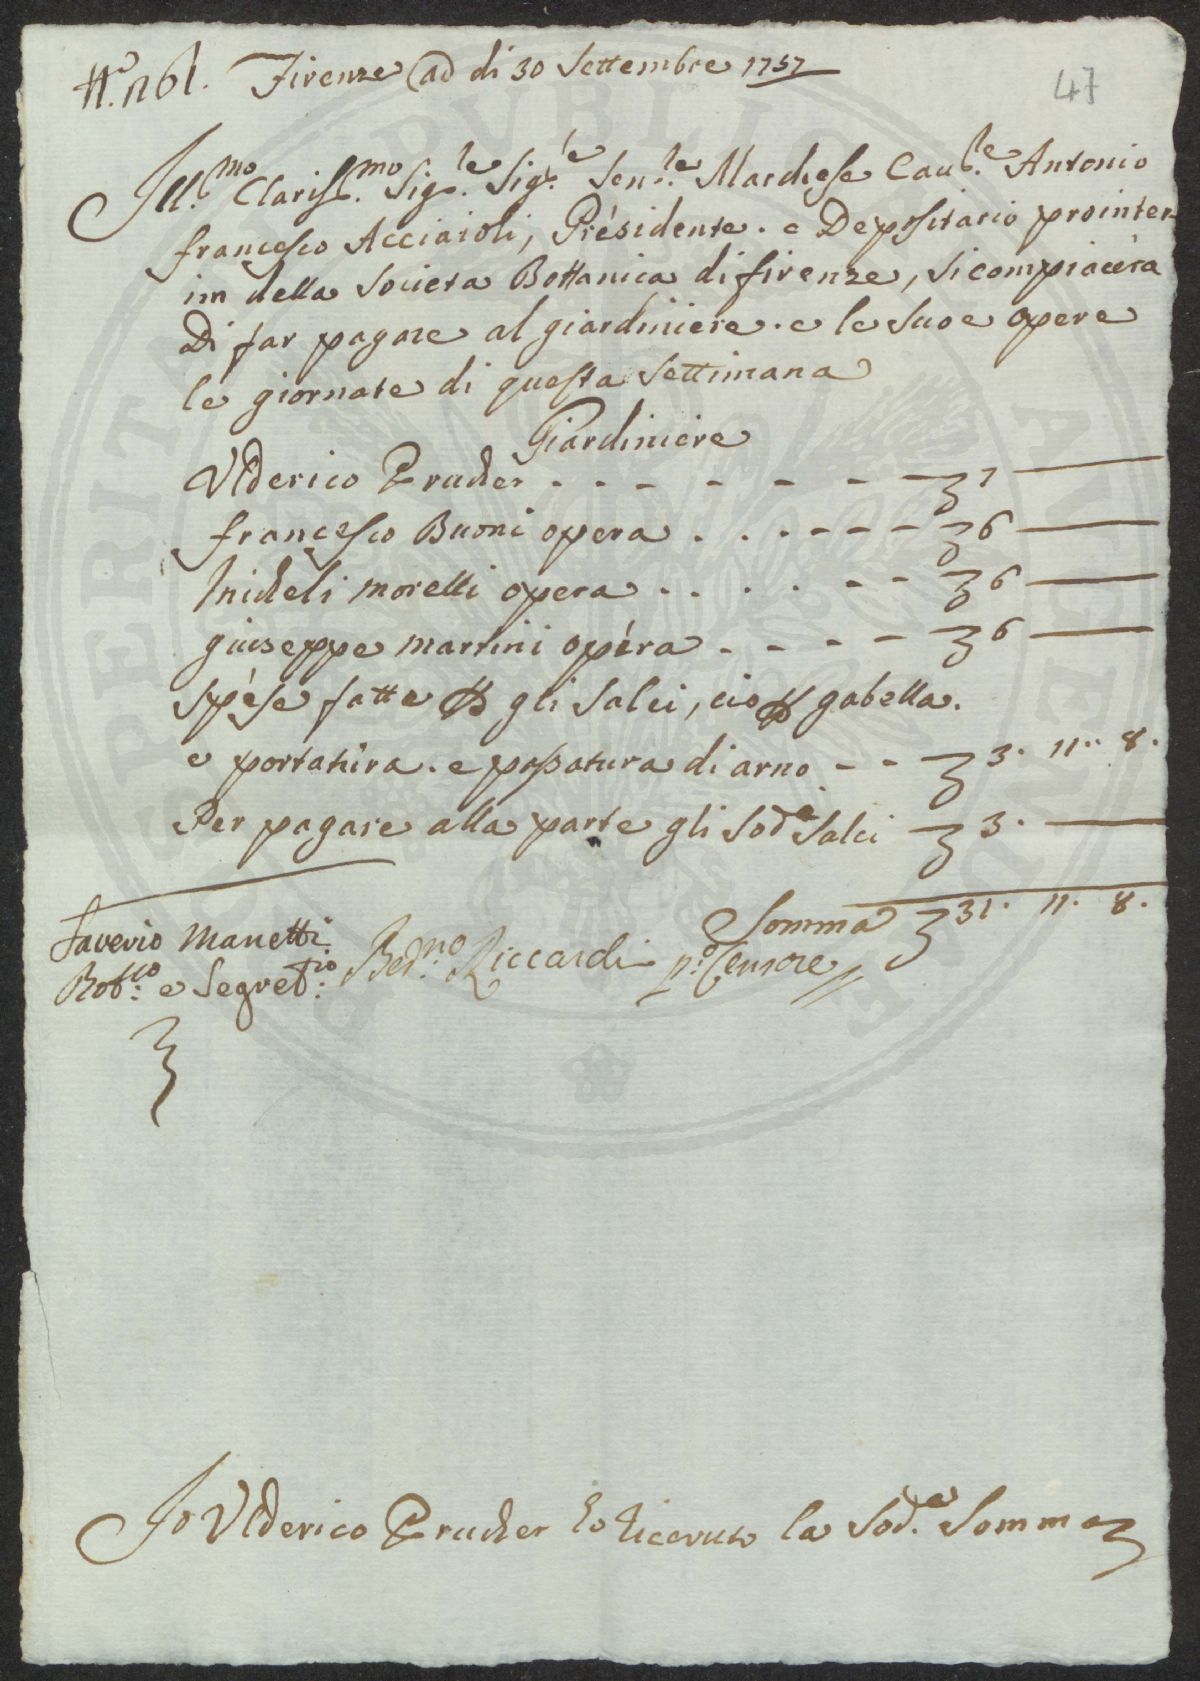 N.º 1161. Firenze ad di 30 Settembre 1757
47
Ill.mo Clariss.mo Sig.le Sig.le Sen.le Marchese Cau.le Antonio
francesco Acciaioli, Présidente. e Depositario prointer
im della Societa Bottanica di firenze, si compiacera
Di far pagare al giardiniere. e le Suoe opere
le giornate di questa Settimana
Giardiniere
Vlderico Prucher - - - - - - - 7 —
francesco Buoni opera - - - - - - 6 —
Micheli morelli opera - - - - - - 6 —
giuseppe martini opéra - - - - 6 —
spése fatte p gli Salci, cio p gabella.
e portatura. e passatura di arno - - 3. 11. 8.
Per pagare alla parte gli Sod.e Salci 3. —
Somma 31. 11. 8.
Saverio Manetti
Bot.co e Segret.rio
Ber.no Riccardi p.o Censore
Io Vlderico Prucher ho riceuuto la Sod.a Somma
PUBLICAE